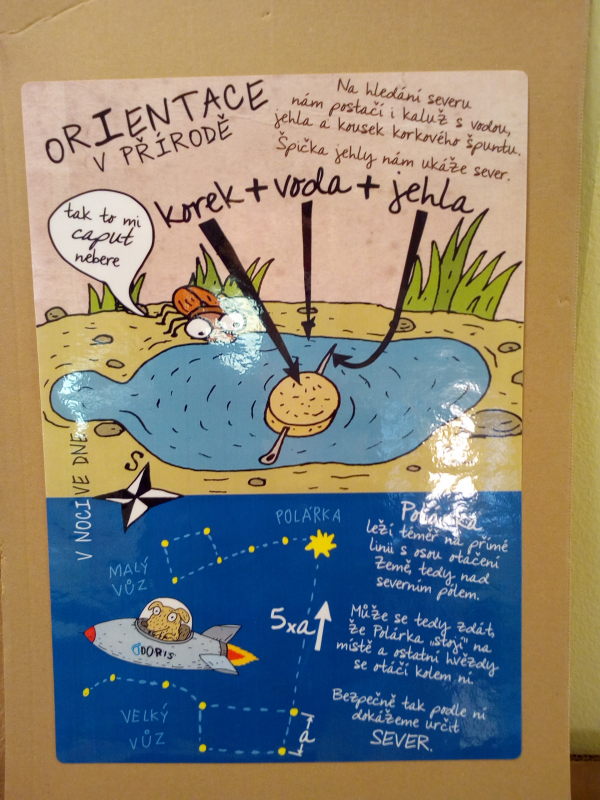 ORIENTACE
V PŘÍRODĚ
Na hledání severu
nám postačí i kaluž s vodou,
jehla a kousek korkového špuntu.
Špička jehly nám ukáže sever.
korek + voda + jehla
tak to mi
caput
nebere
VE DNE
V NOCI
S
POLÁRKA
MALÝ
VŮZ
5xa
DORIS
VELKÝ
VŮZ
a
Polárka
leží téměř na přímé
linii s osou otáčení
Země, tedy nad
severním pólem.
Může se tedy zdát,
že Polárka „stojí“ na
místě a ostatní hvězdy
se otáčí kolem ní.
Bezpečně tak podle ní
dokážeme určit
SEVER.